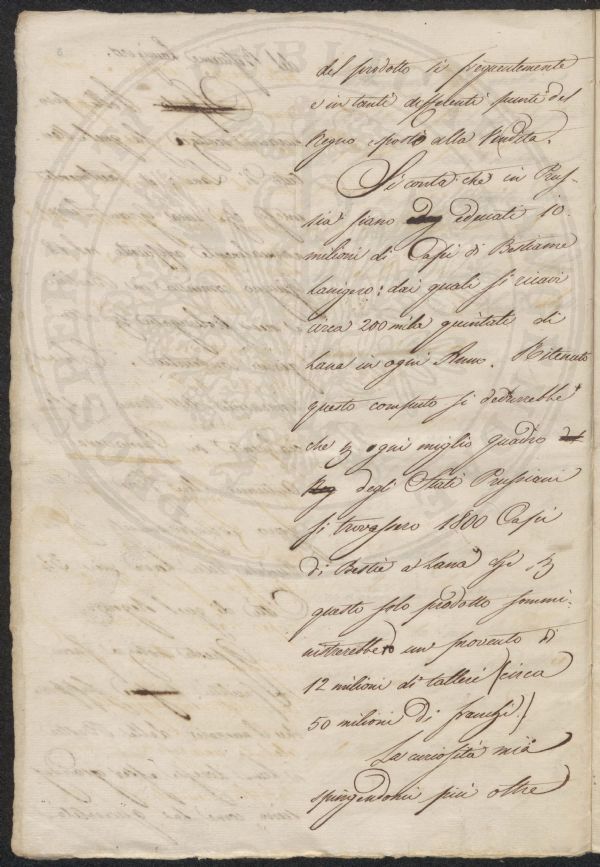 del prodotto si frequentemente
e in tanti differenti punti del
Regno esposti alla Vendita.
Si conta che in Prus-
sia siano educati 10.
milioni di Capi di Bestiame
Lanigero: dai quali si ricavi
circa 200 mila quintali di
Lana in ogni Anno. Ritenuto
questo computo si dedurrebbe
che ogni miglio quadro
degli Stati Prussiani
si trovassero 1800 Capi
di Bestie a Lana
questo solo prodotto sommi-
nistrerebbero un provento di
12 milioni di talleri (circa
50 milioni di franchi.)
La curiosità mia
spingendomi più oltre